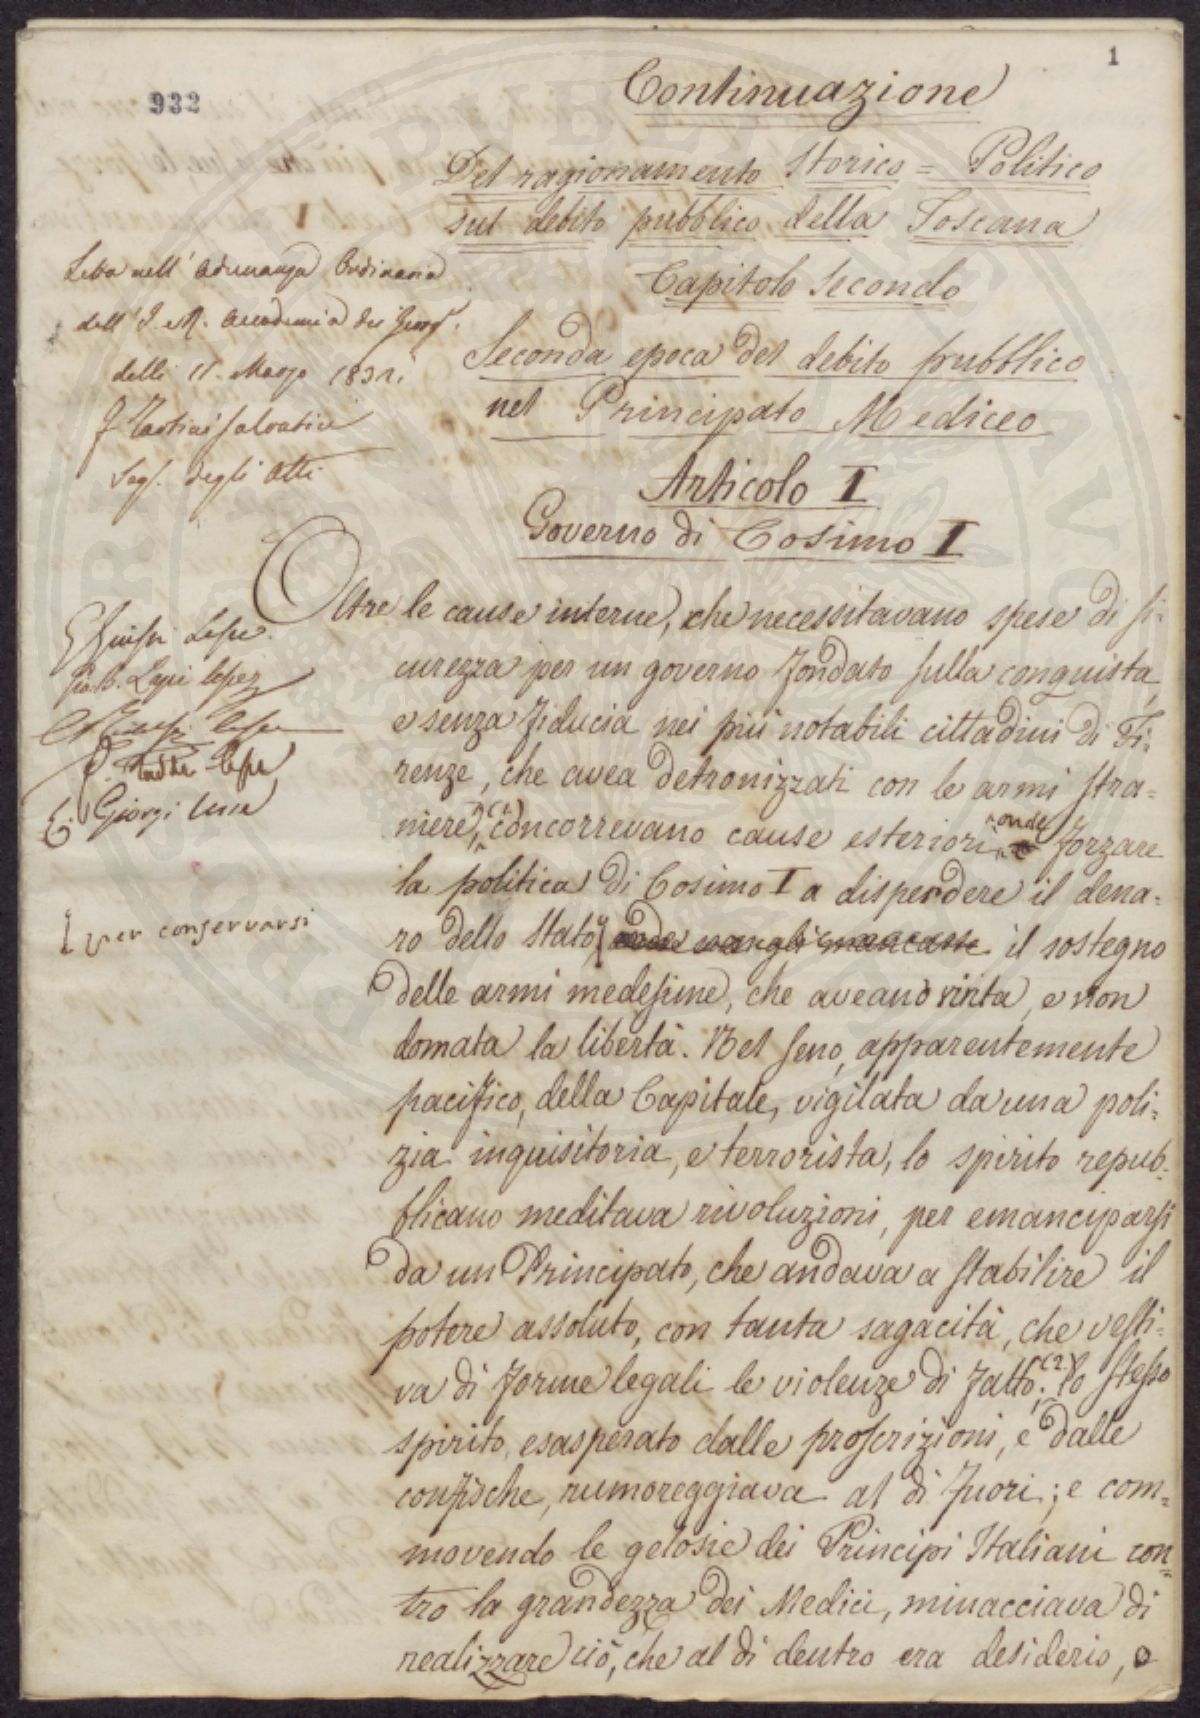 1
932
Continuazione
Del ragionamento Storico = Politico
sul debito pubblico della Toscana
Capitolo Secondo
Seconda epoca del debito pubblico
nel Principato Mediceo
Articolo I
Governo di Cosimo I
Letta nell' Adunanza Ordinaria
dell' I. e R. Accademia dei Georg.
delli 11. Marzo
Seg. degli Atti
Oltre le cause interne, che necessitavano spese di si-
curezza per un governo fondato sulla conquista,
e senza fiducia nei più notabili cittadini di Fi-
renze, che avea detronizzati con le armi stra=
niere, (1) concorrevano cause esteriori onde forzare
la politica di Cosimo I a disperdere il dena=
ro dello Stato, il sostegno
delle armi medesime, che aveano vinta, e non
domata la libertà. Nel seno, apparentemente
pacifico, della Capitale, vigilata da una poli=
zia inquisitoria, e terrorista, lo spirito repub-
blicano meditava rivoluzioni, per emanciparsi
da un Principato, che andava a stabilire il
potere assoluto, con tanta sagacità, che vesti=
va di forme legali le violenze di fatto; (2) lo stesso
spirito, esasperato dalle proscrizioni, e dalle
confische, rumoreggiava al di fuori; e com=
movendo le gelosie dei Principi Italiani con=
tro la grandezza dei Medici, minacciava di
realizzare ciò, che al di dentro era desiderio, e
Lapi
Giorgi
per conservarsi